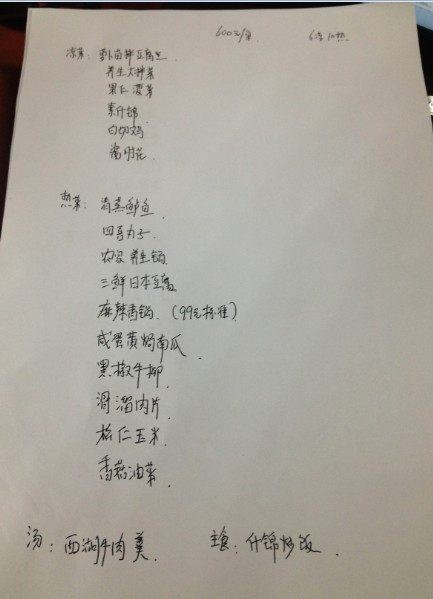 600元/桌 6凉10热
凉菜：萝卜苗拌豆腐丝
养生大拌菜
果仁菠菜
素什锦
白切鸡
酱肘花
热菜：清蒸鲈鱼
四喜丸子
农家养生锅
三鲜日本豆腐
麻辣香锅（99元标准）
咸蛋黄焗南瓜
黑椒牛柳
滑溜肉片
松仁玉米
香菇油菜
汤：西湖牛肉羹 主食：什锦炒饭